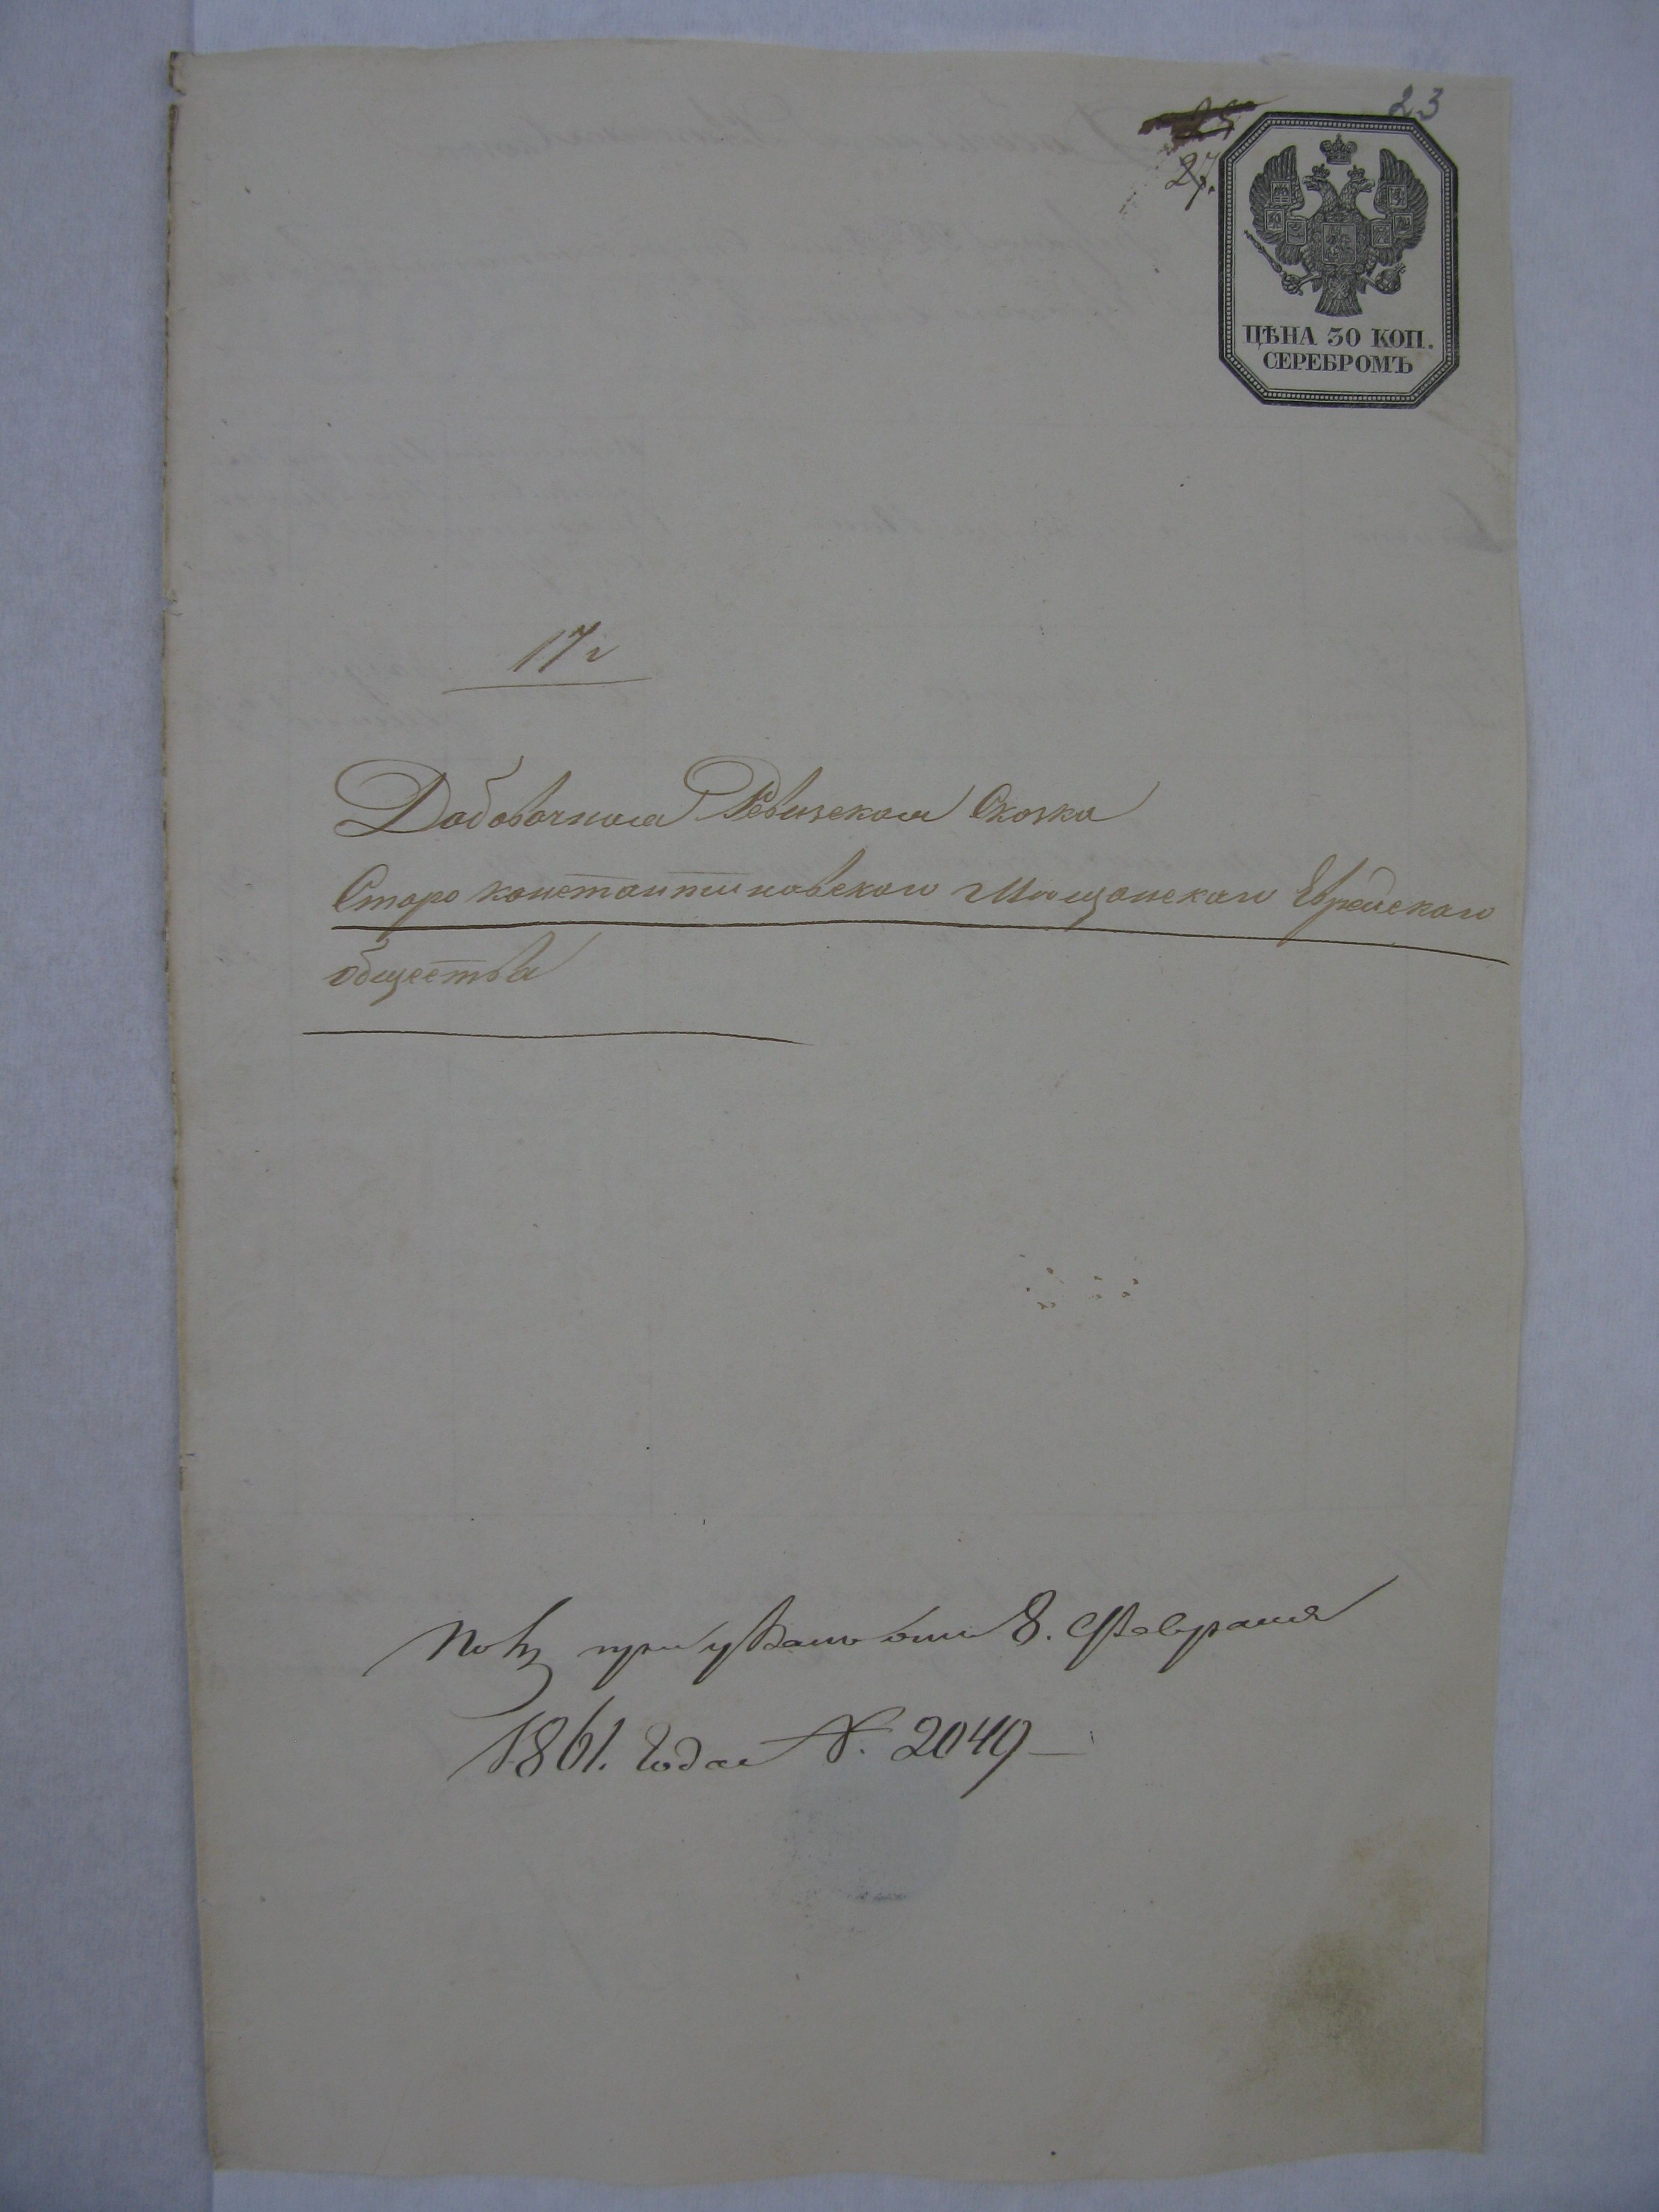 23
25
27.
ЦѢНА 30 КОП.
СЕРЕБРОМЪ
17
Добовочная Ревизская Скозка
Старо константиновскаго Мещанскаго Еврейскаго
общества
при указѣ отъ 8. Февраля
1861. года N. 2049